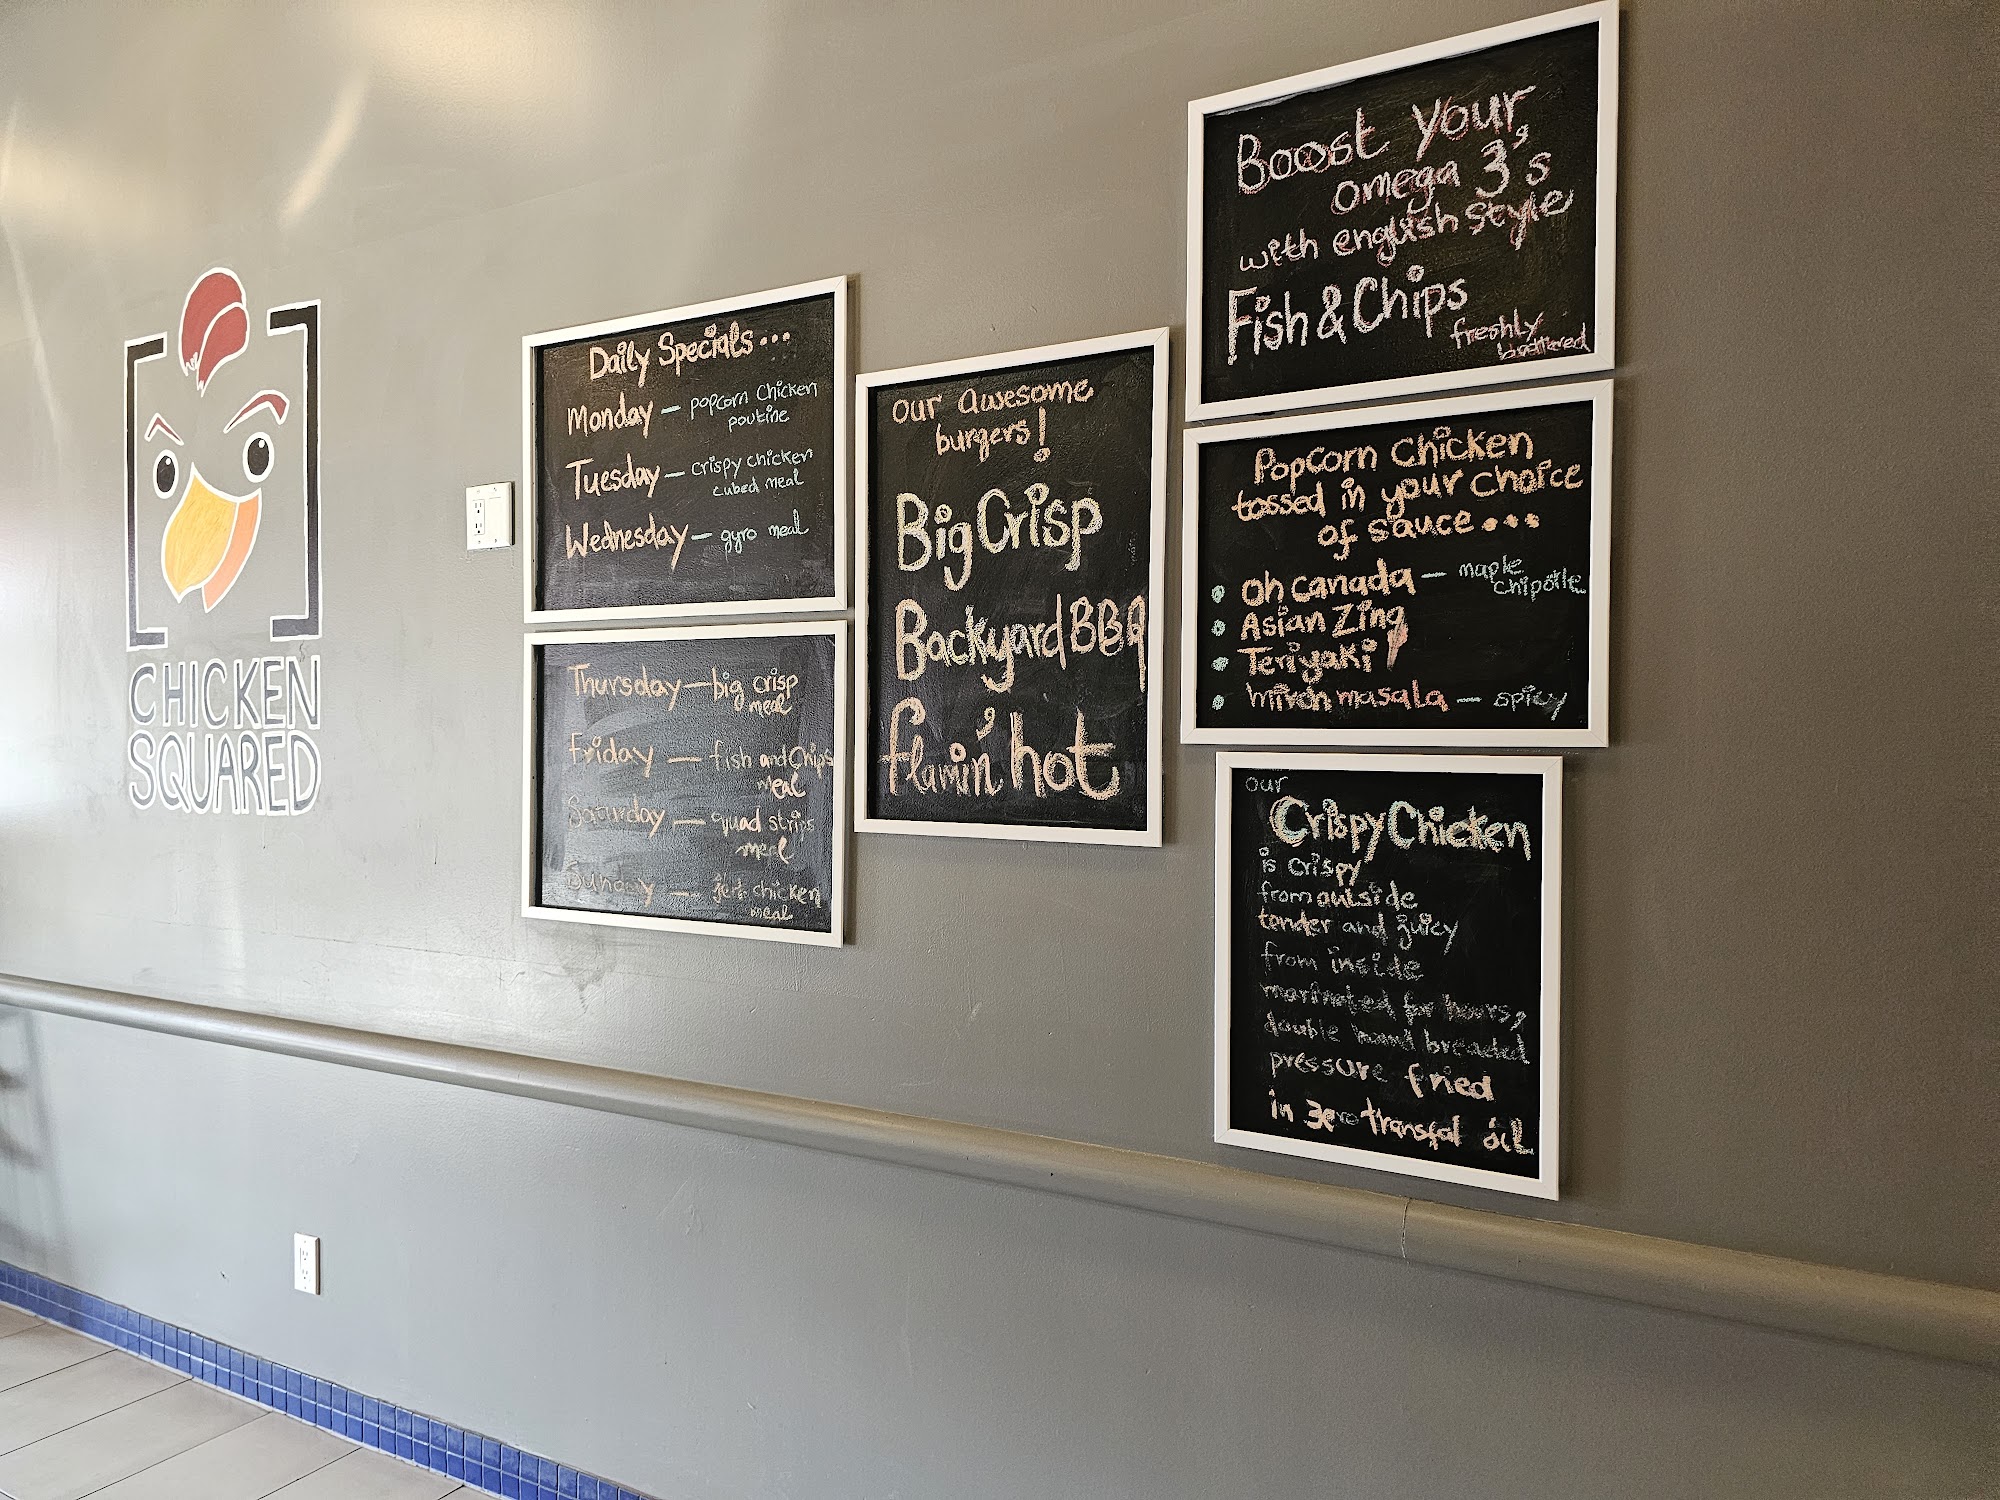 CHICKEN
SQUARED
Daily Specials...
Monday — popcorn Chicken
poutine
Tuesday — crispy chicken
cubed meal
Wednesday — gyro meal
Thursday — big crisp
meal
Friday — fish and Chips
meal
Saturday — quad strips
meal
Sunday — jerk chicken
meal
our awesome
burgers!
Big Crisp
Backyard BBQ
flamin' hot
Boost Your
omega 3's
with english style
Fish & Chips
freshly
battered
PopCorn Chicken
tossed in your choice
of sauce...
• Oh canada — maple
chipotle
• Asian Zing
• Teriyaki
• mirch masala — spicy
our
Crispy Chicken
is crispy
from outside
tender and juicy
from inside
marinated for hours,
double hand breaded
pressure fried
in zero transfat oil